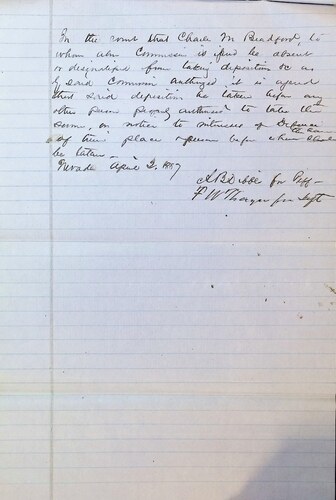 In the event that Charles M Bradford, to
whom a Commission is issued be absent
or disqualified from taking depositions &c as
by said Commission authorized it is agreed
that said depositions be taken before any
other person properly authorized to take the
same, on notice to witnesses of Defense
the same
of time place & person before whom should
be taken —
Nevada April 2. 1867
A B Dibble for Plff —
F W Thayer for deft